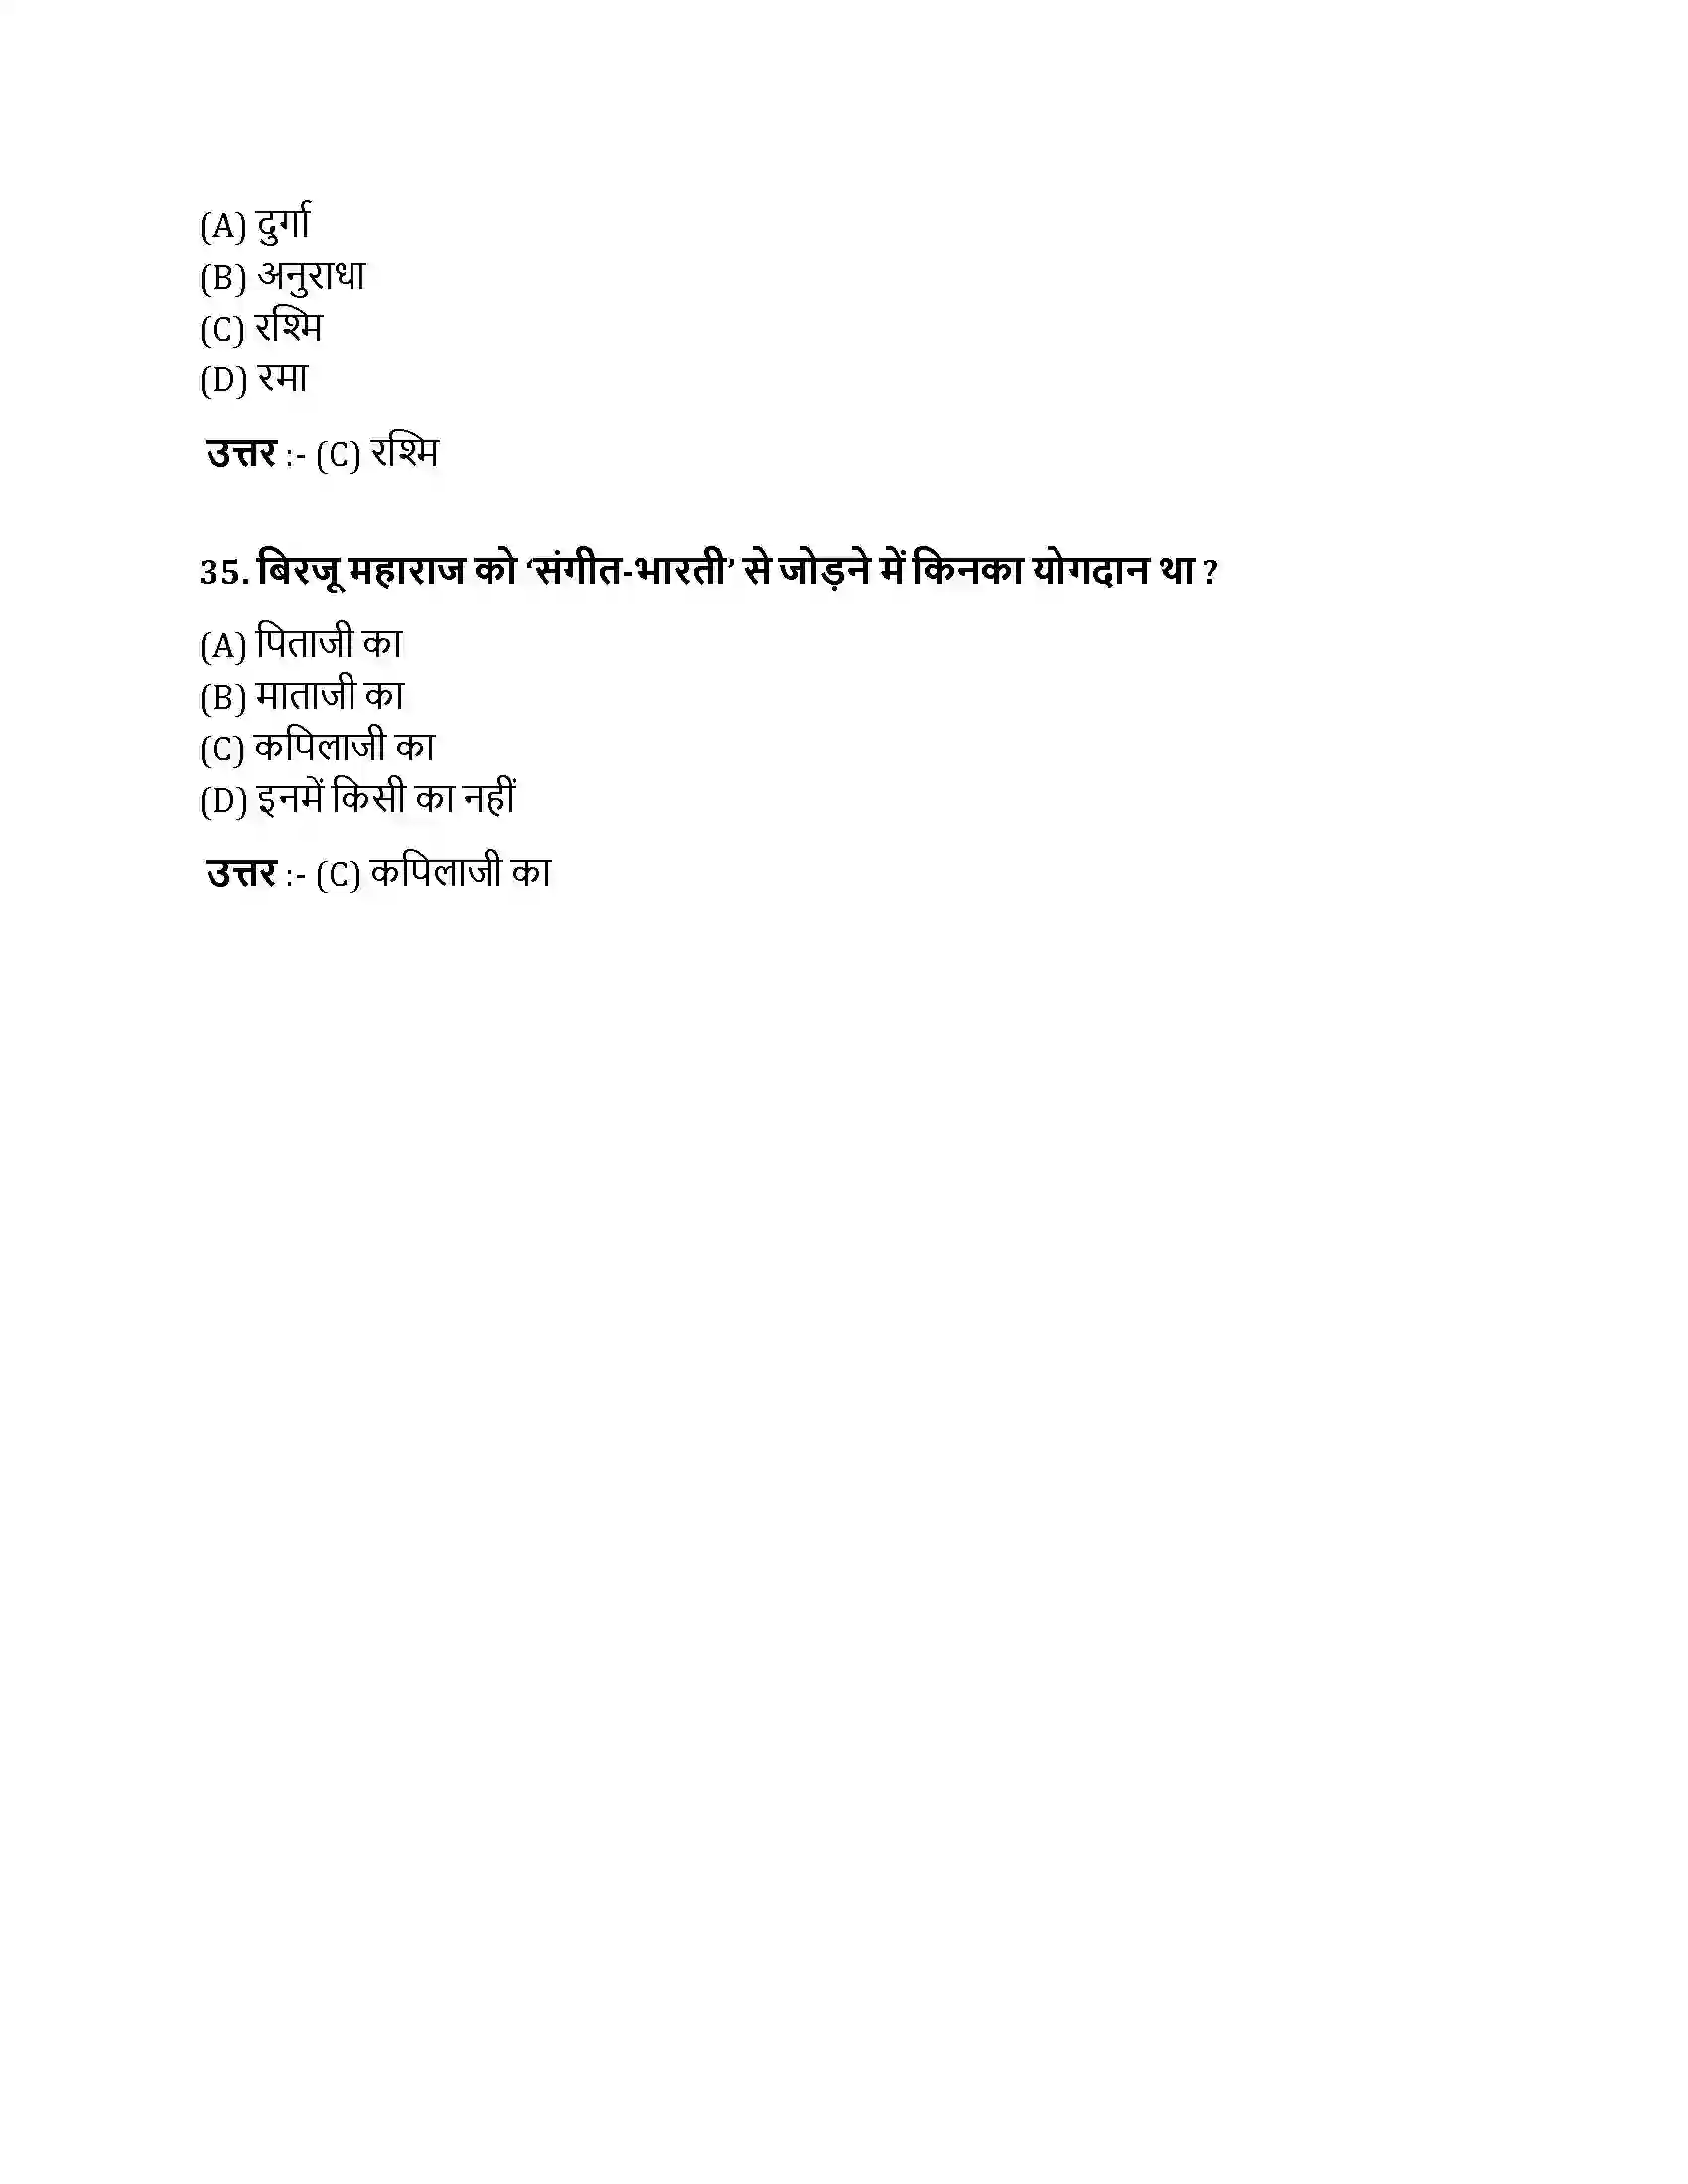 (A) दुर्गा
(B) अनुराधा
(C) रश्मि
(D) रमा
उत्तर :- (C) रश्मि
35. बिरजू महाराज को ‘संगीत-भारती’ से जोड़ने में किनका योगदान था ?
(A) पिताजी का
(B) माताजी का
(C) कपिलाजी का
(D) इनमें किसी का नहीं
उत्तर :- (C) कपिलाजी का